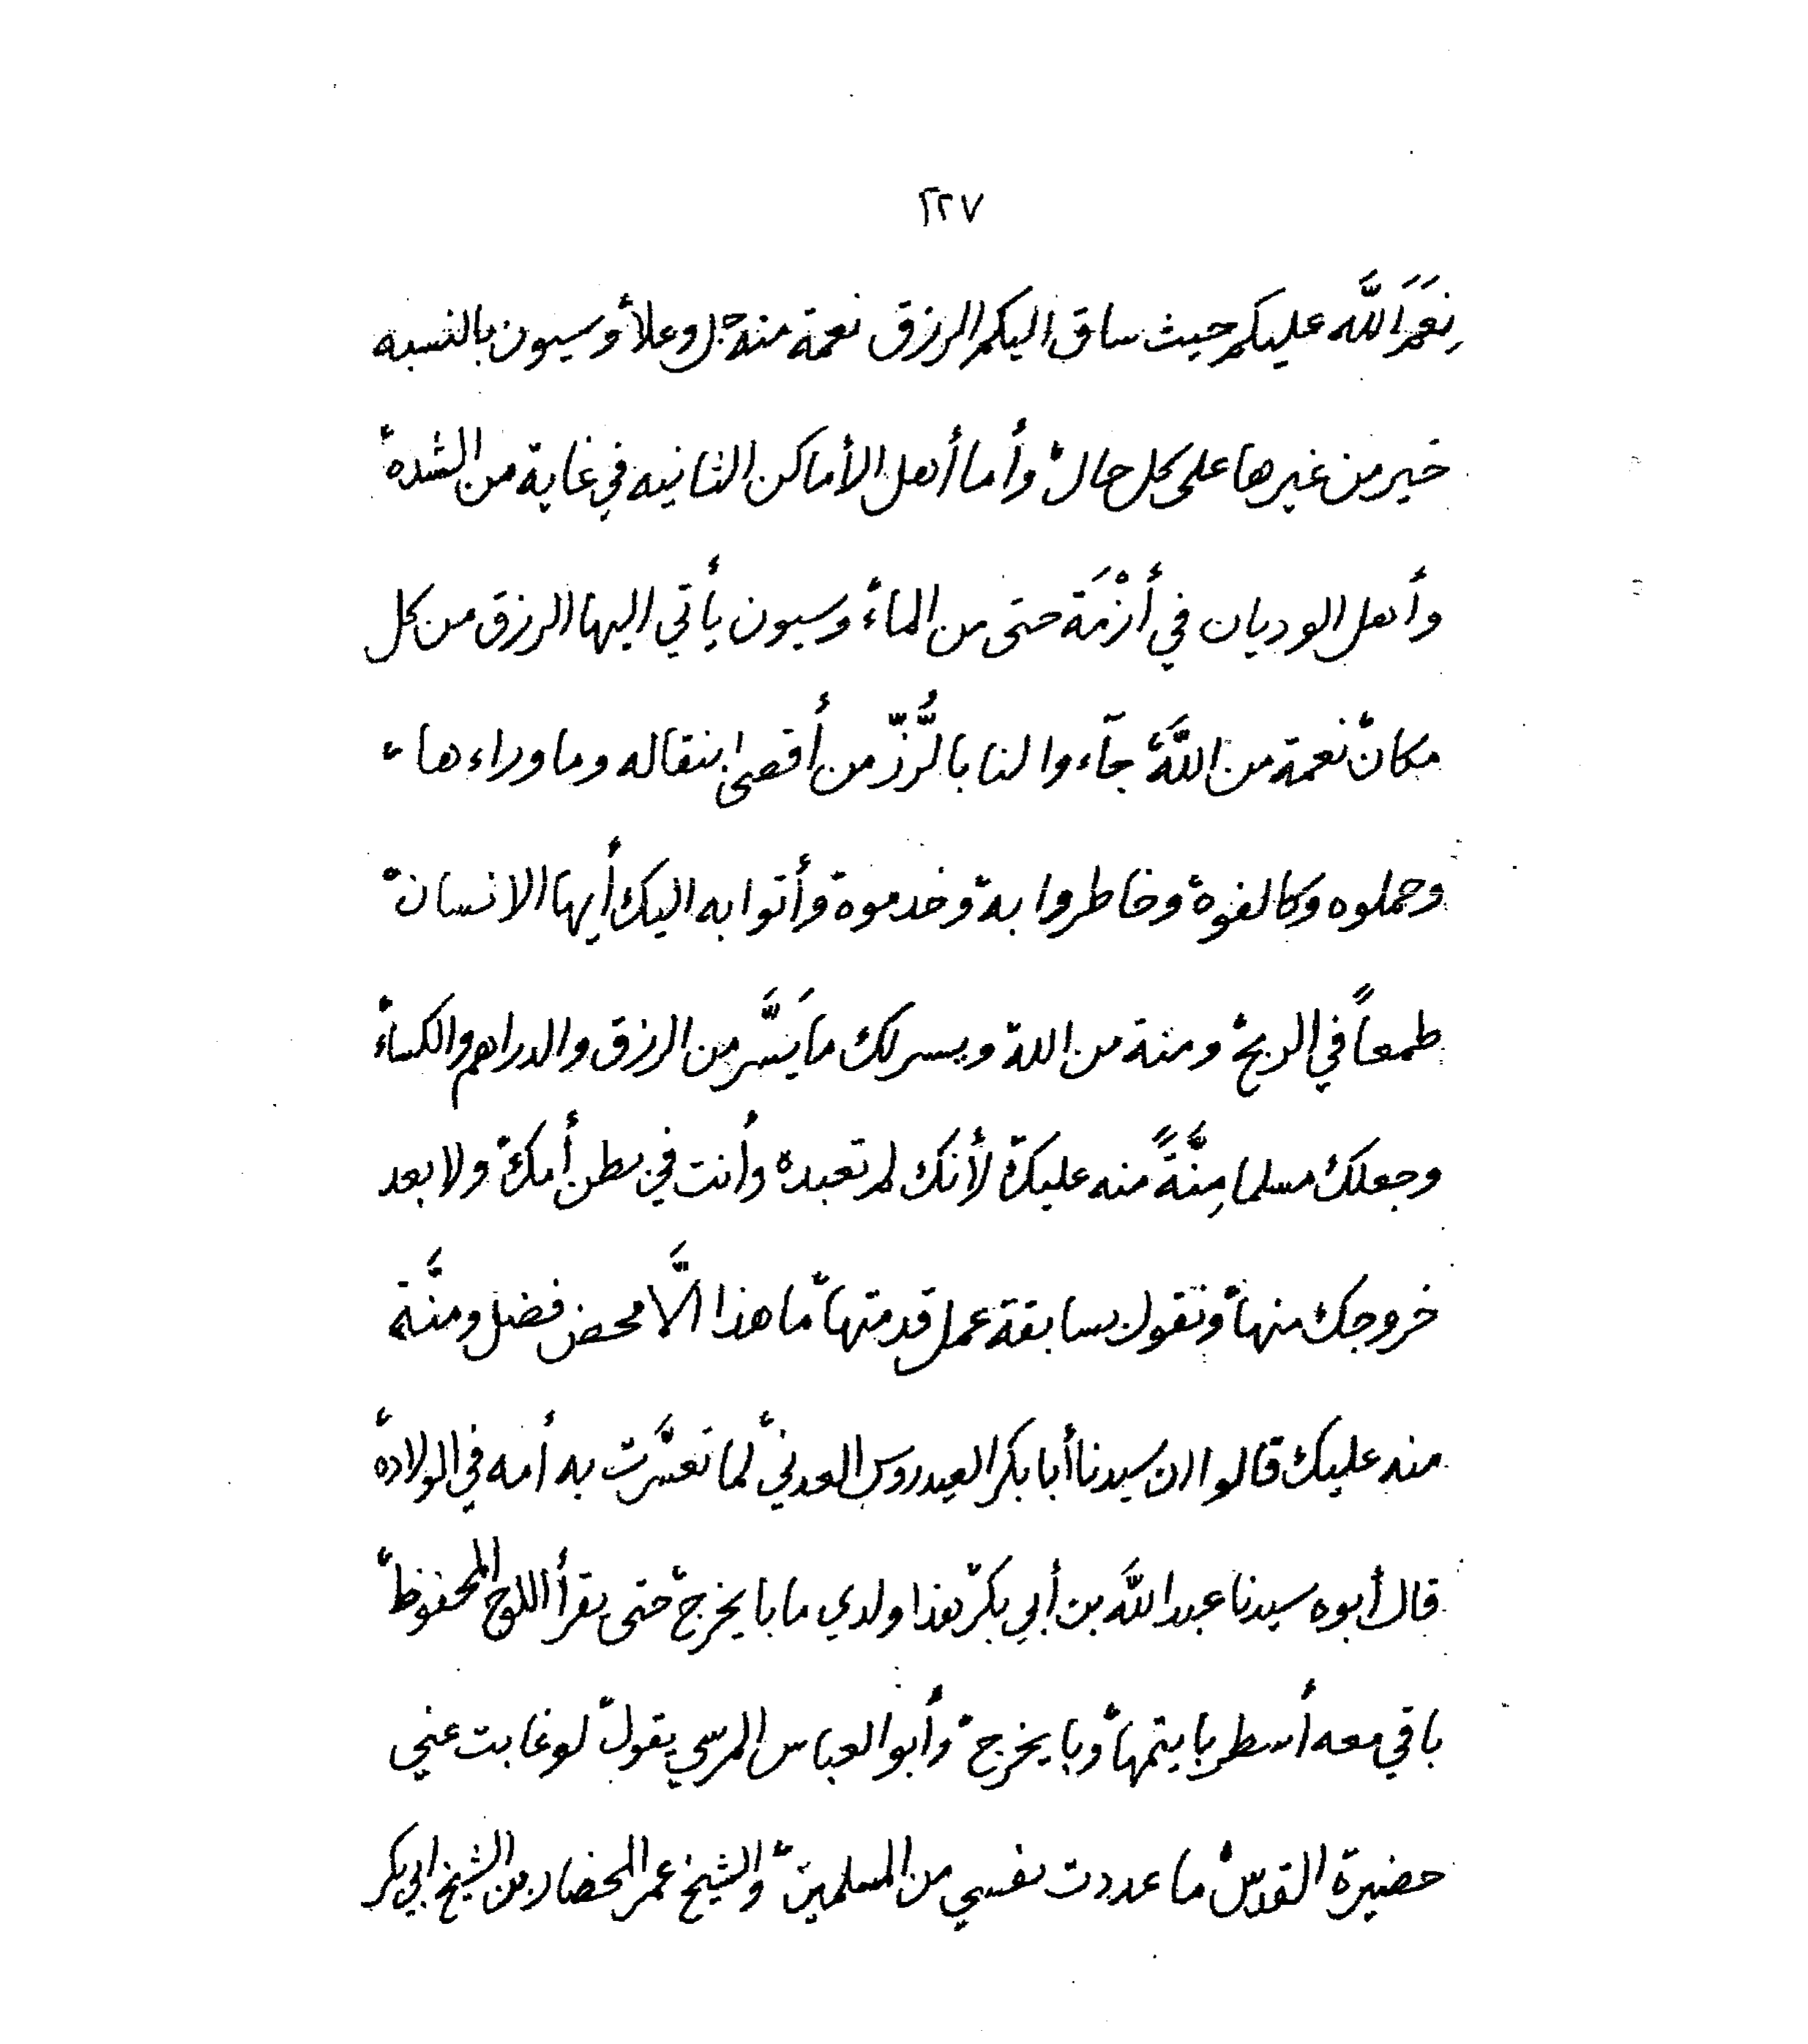 ٢٢٧
نِعَمَ اللَّه عليكم حيث ساق اليكم الرزق نعمة منه جل وعلا، وسيون بالنسبه
خير من غيرها على كل حال، وأما أهل الأماكن الثانيه في غاية من الشده،
وأهل الوديان في أزْمَة حتى من الماء، وسيون يأتي اليها الرزق من كل
مكان، نعمة من اللَّه، جآءوا لنا بالرُّزّ من أقصى بنقاله وما وراءها،
وحملوه وكالفوه، وخاطروا به، وخدموه، وأتوا به اليك أيها الانسان،
طمعاً في الربح، ومنة من الله، ويسر لك ما يَسَّر من الرزق والدراهم والكساء،
وجعلك مسلما مِنَّةً منه عليك، لأنك لم تعبده وأنت في بطن أمك، ولا بعد
خروجك منها، وتقول بسابقة عمل قدمتها، ما هذا الَّا محض فضل ومنَّة
منه عليك قالوا ان سيدنا أبا بكر العيدروس العدني، لما تعسَّرت به أمه في الولاده،
قال أبوه سيدنا عبد اللَّه بن أبي بكر، هذا ولدي ما با يخرج، حتى يقرأ اللوح المحفوظ،
باقي معه أسطر با يتمها، وبا يخرج، وأبو العباس المرسي يقول، لو غابت عني
حضيرة القدس، ما عددت نفسي من المسلمين، والشيخ عمر المحضار بن الشيخ ابي بكر